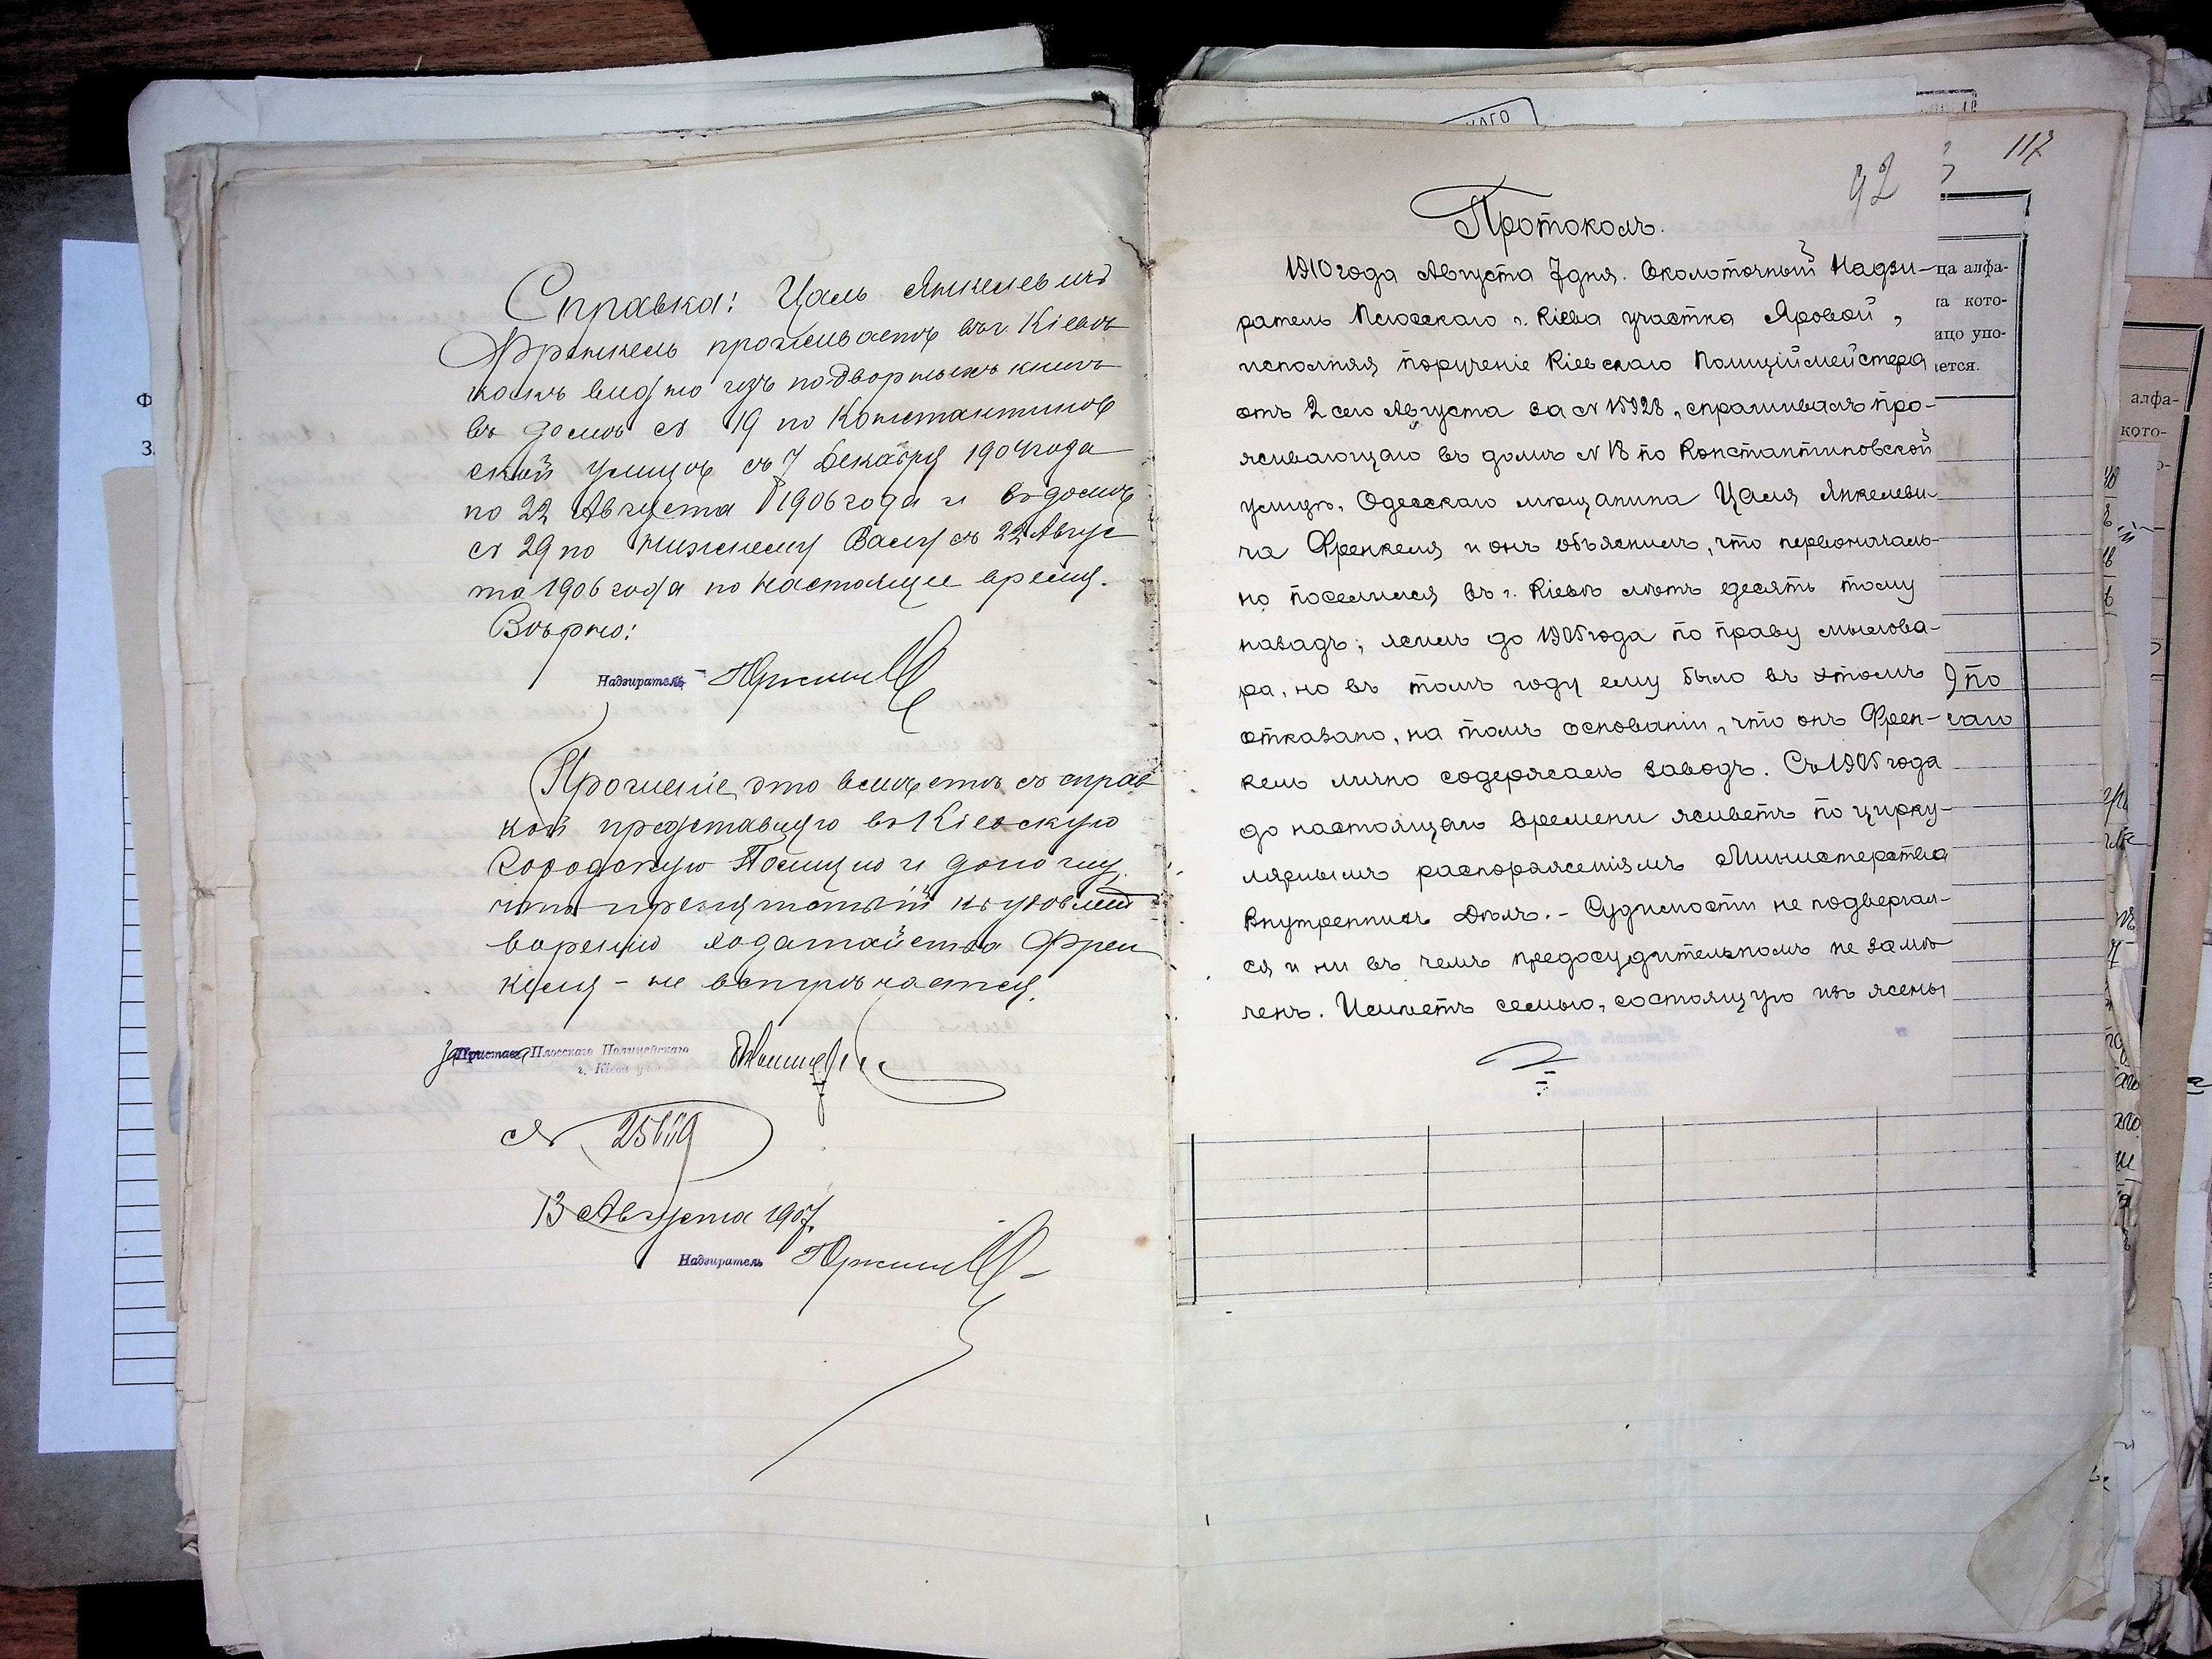 Справка: Цаль Янкелевичъ
Френкель проживаетъ въ г. Кіевѣ
какъ видно изъ подворныхъ книгъ
въ домѣ № 19 по Константинов
ской улицѣ съ 7 Декабря 1904 года
по 22 Августа 1906 года и въ домѣ
№ 29 по Нижнему Валу съ 22 Авгус
та 1906 года по настоящее время.
Вѣрно:
Надзиратель
Прошеніе это вмѣстѣ съ справ
кой представляю въ Кіевскую
Городскую Полицію и доношу,
что препятствій къ удовлет
воренію ходатайства Френ
келя - не встрѣчается.
за Пристава Плосскаго Полицейскаго
г. Кіева
№
13 Августа 1907
Надзиратель
117
92
Протоколъ.
1910 года Августа 7 дня. Околоточный Надзи-
ратель Плосскаго г. Кіева участка Яровой,
исполняя порученіе Кіевскаго Полиціймейстера
отъ 2 сего Августа за № 15928, спрашивалъ про-
живающаго въ домѣ № 18 по Константиновской
улицѣ, Одесскаго мѣщанина Цаля Янкелеви-
ча Френкеля и онъ объяснилъ, что первоначаль-
но поселился въ г. Кіевѣ лѣтъ десять тому
назадъ; жилъ до 1905 года по праву мыловa-
ра, но въ томъ году ему было въ этомъ
отказано, на томъ основаніи, что онъ Френ-
кель лично содержалъ заводъ. Съ 1905 года
до настоящаго времени живетъ по цирку-
лярнымъ распоряженіямъ Министерства
Внутреннихъ Дѣлъ. - Судимости не подвергал-
ся и ни въ чемъ предосудительномъ не замѣ-
ченъ. Имѣетъ семью, состоящую изъ жены
ца алфа-
на кото-
ицо упо-
ется.
по
каго
алфа-
кото-